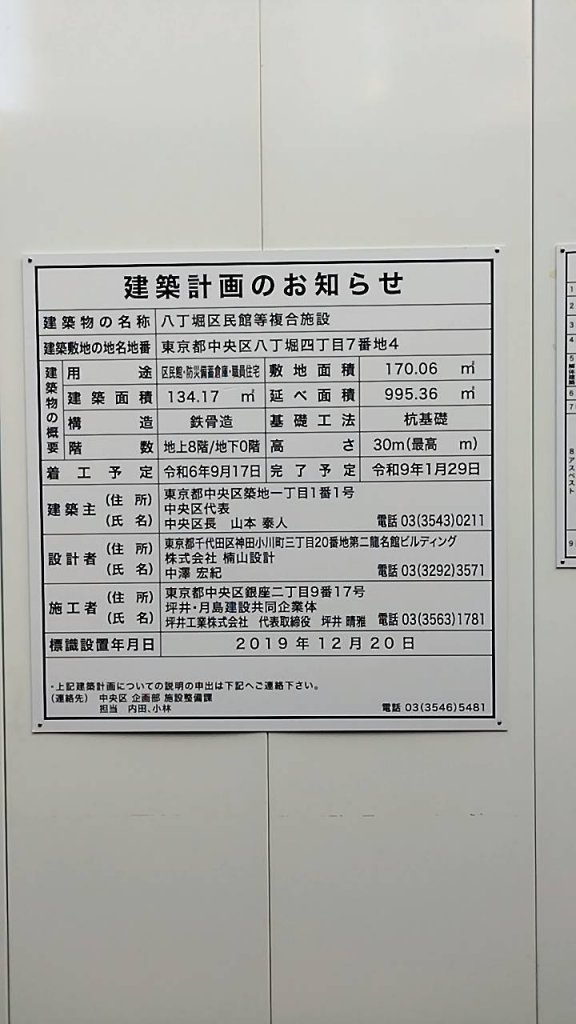 建築計画のお知らせ
建築物の名称 八丁堀区民館等複合施設
建築敷地の地名地番 東京都中央区八丁堀四丁目7番地4
建築物の概要
用途 区民館・防災備蓄倉庫・職員住宅 敷地面積 170.06 ㎡
建築面積 134.17 ㎡ 延べ面積 995.36 ㎡
構造 鉄骨造 基礎工法 杭基礎
階数 地上8階/地下0階 高さ 30m(最高 m)
着工予定 令和6年9月17日 完了予定 令和9年1月29日
建築主 (住所) 東京都中央区築地一丁目1番1号
中央区代表
(氏名) 中央区長 山本 泰人 電話 03(3543)0211
設計者 (住所) 東京都千代田区神田小川町三丁目20番地第二龍名館ビルディング
株式会社 楠山設計
(氏名) 中澤 宏紀 電話 03(3292)3571
施工者 (住所) 東京都中央区銀座二丁目9番17号
坪井・月島建設共同企業体
(氏名) 坪井工業株式会社 代表取締役 坪井 晴雅 電話 03(3563)1781
標識設置年月日 2019年12月20日
・上記建築計画についての説明の申出は下記へご連絡下さい。
(連絡先) 中央区 企画部 施設整備課
担当 内田、小林 電話 03(3546)5481
1
2
3
4
5
6
7
8 アスベスト
9